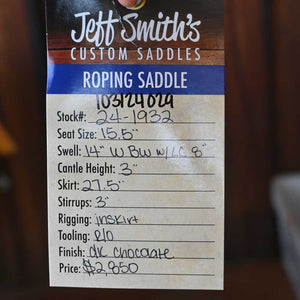 Jeff Smith's
CUSTOM SADDLES
ROPING SADDLE
103124029
Stock#: 24-1932
Seat Size: 15.5"
Swell: 14" W BW w/LC 8"
Cantle Height: 3"
Skirt: 27.5"
Stirrups: 3"
Rigging: inskirt
Tooling: R/O
Finish: dk chocolate
Price: $2,850